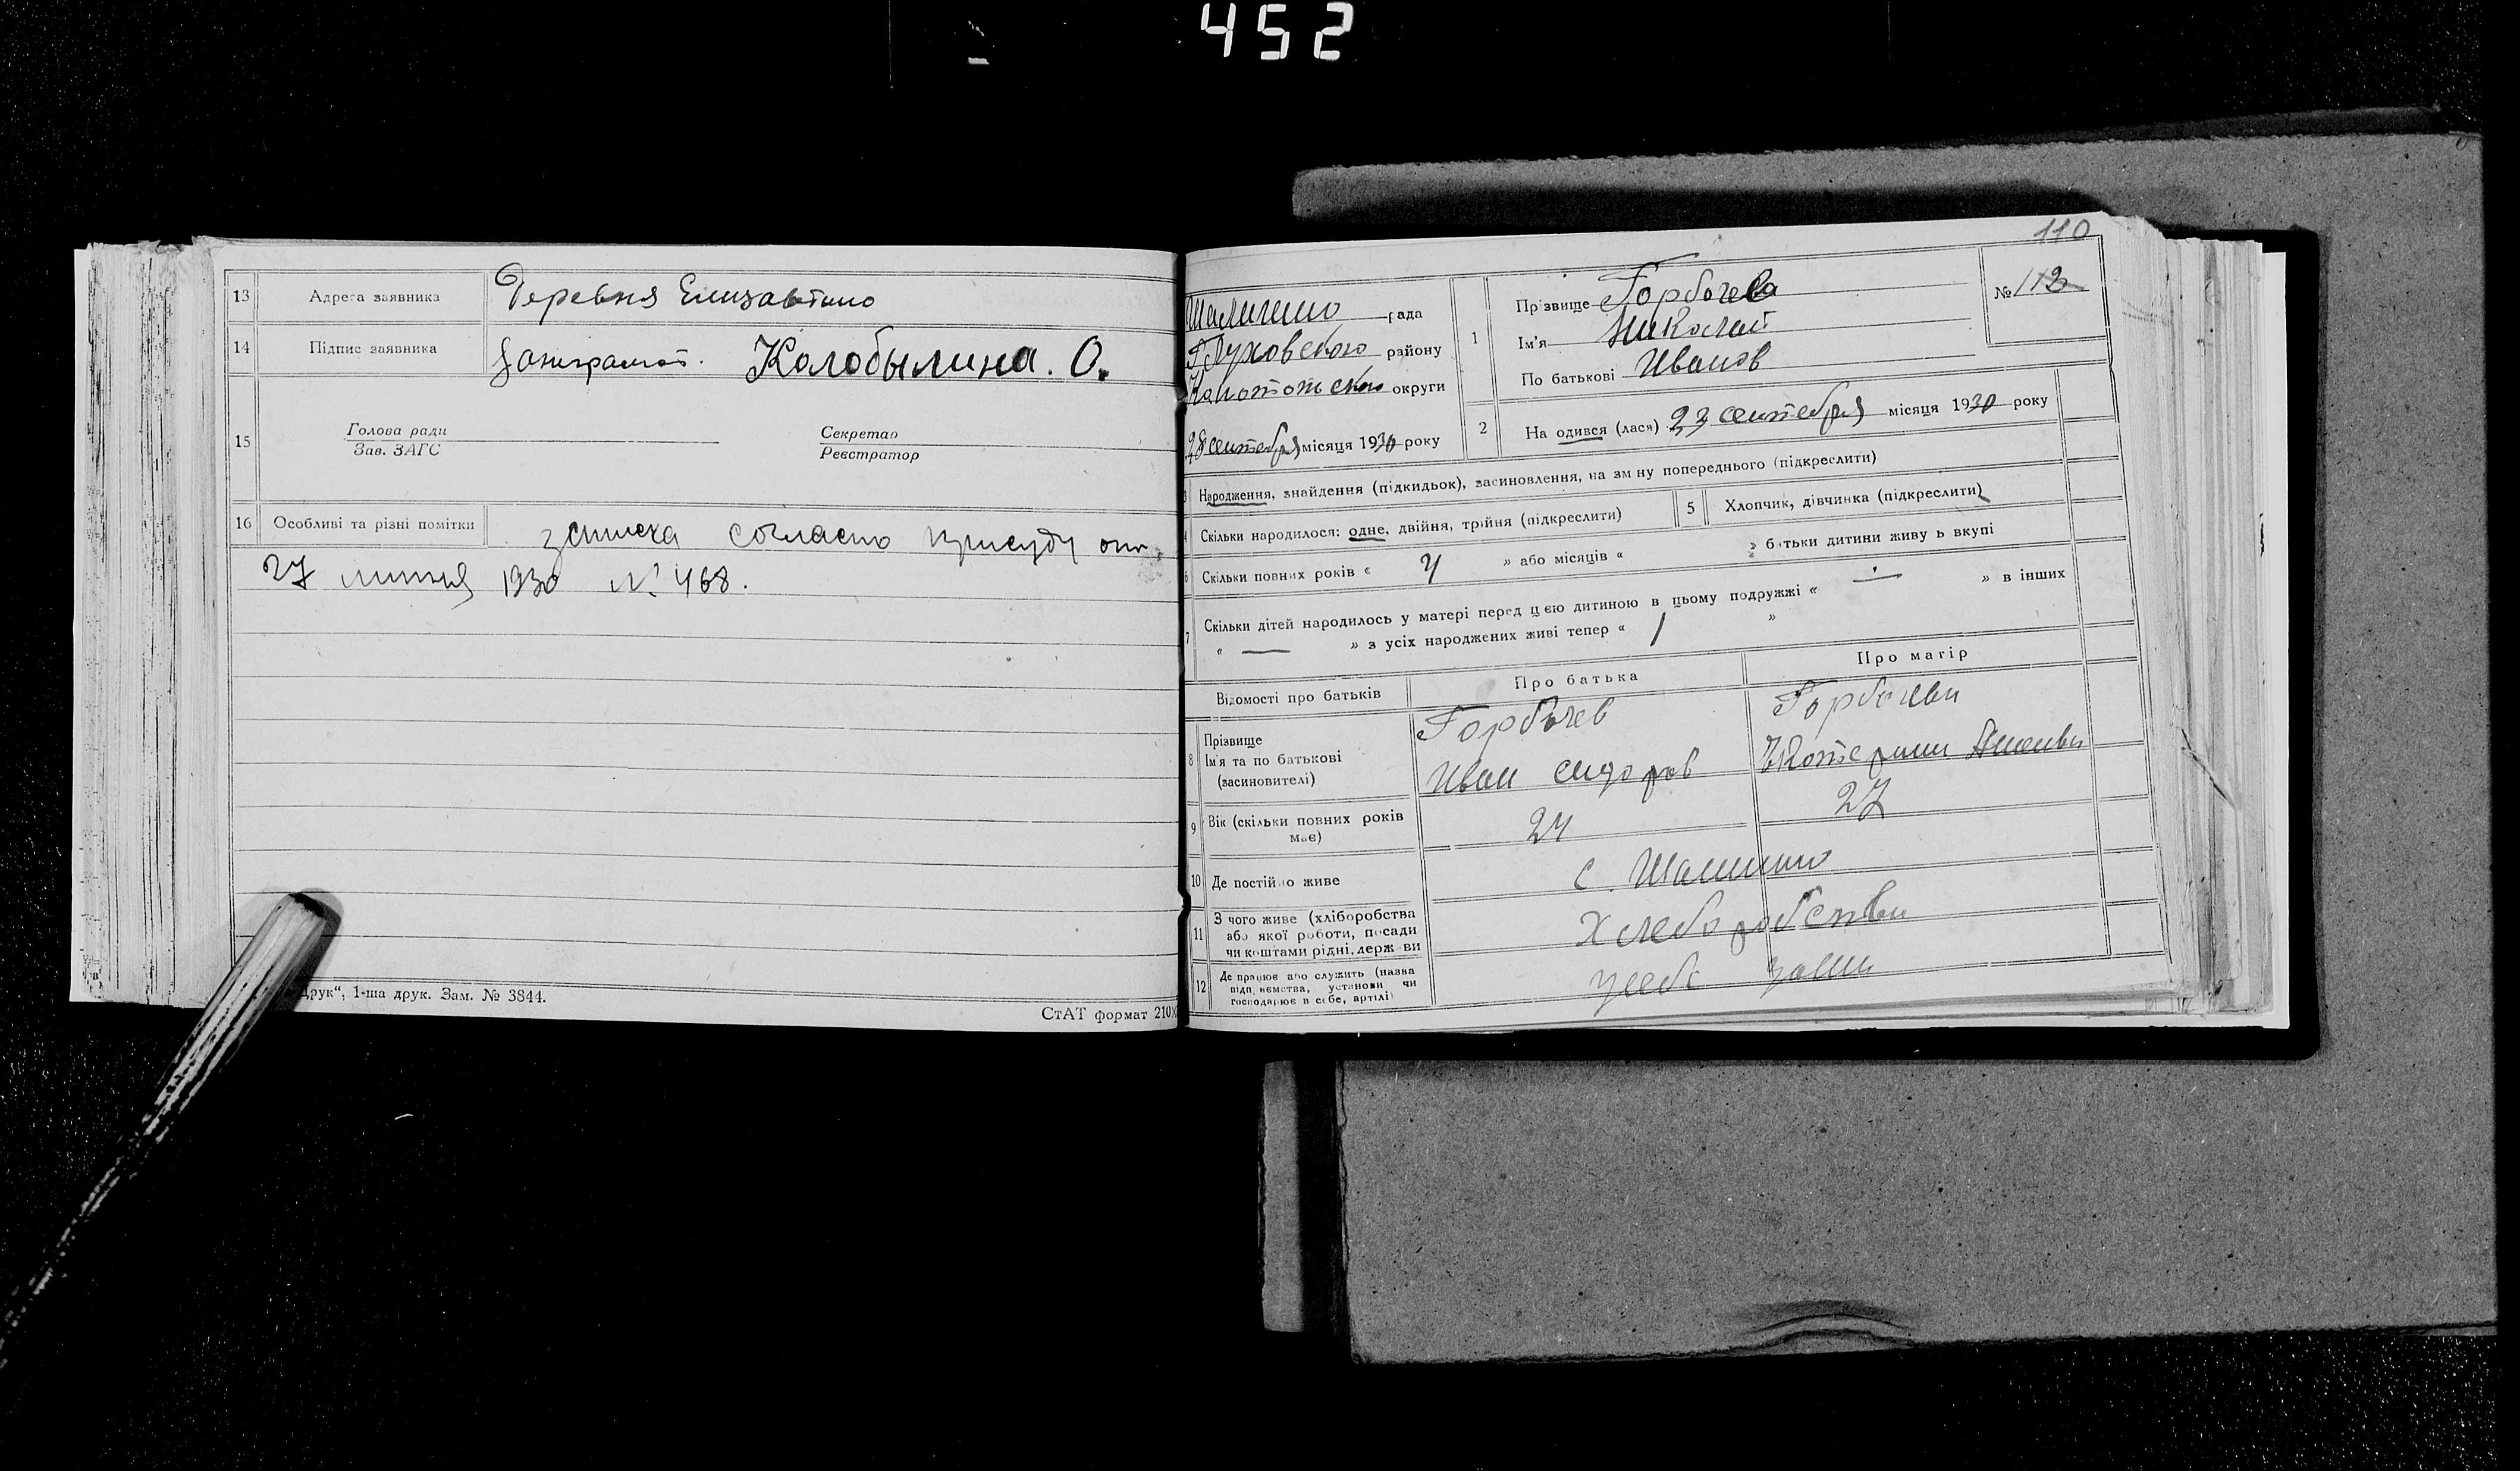 452
13 Адреса заявника Деревня Елизаветино
14 Підпис заявника Колобылина. О.
15 Голова ради Секретар
Зав. ЗАГС Реєстратор
16 Особливі та різні помітки записка согласно присуду от
27 липня 1930 № 468.
Друк“, 1-ша друк. Зам. № 3844.
СтАТ формат 210
110
№ 112
Шалигино рада
Глуховского району
Конотопского округи
28 сентября місяця 1930 року
1 Прізвище Горбачева
Ім'я Николай
По батькові Иванов
2 На одився (лася) 23 сентября місяця 1930 року
3 Народження, знайдення (підкидьок), засиновлення, на зм ну попереднього (підкреслити)
4 Скільки народилося: одне, двійня, трійня (підкреслити)
5 Хлопчик, дівчинка (підкреслити)
6 Скільки повних років « 4 » або місяців « » батьки дитини живу ь вкупі
7 Скільки дітей народилось у матері перед цією дитиною в цьому подружжі « — » в інших
« — » з усіх народжених живі тепер « 1 »
Відомості про батьків Про батька Про матір
8 Прізвище Горбачев Горбачева
Ім'я та по батькові Иван Сидоров
(засиновителі)
9 Вік (скільки повних років має) 24 27
10 Де постійно живе с. Шалигино
11 З чого живе (хліборобства або якої роботи, посади чи коштами рідні, держ ви Хлеборобства
12 Де працює або служить (назва підп, иємства, установи чи господарює в себе, артілі)